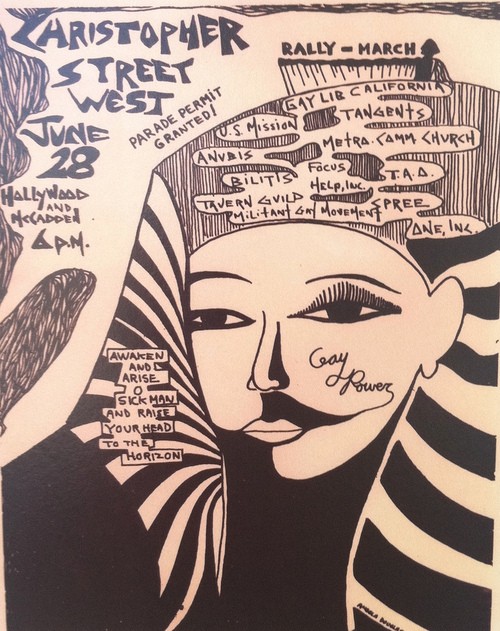 CHRISTOPHER
STREET
WEST
JUNE
28
PARADE PERMIT
GRANTED!
HOLLYWOOD
AND
McCADDEN
6 P.M.
RALLY - MARCH
GAY LIB CALIFORNIA
U.S. MISSION
TANGENTS
METRO. COMM. CHURCH
ANUBIS
FOCUS
BILITIS
HELP, INC.
T.A.O.
TAVERN GUILD
SPREE
MILITANT GAY MOVEMENT
ONE, INC.
Gay
Power
AWAKEN
AND
ARISE
O
SICK MAN
AND RAISE
YOUR HEAD
TO THE
HORIZON
ANGELA DOUGLAS